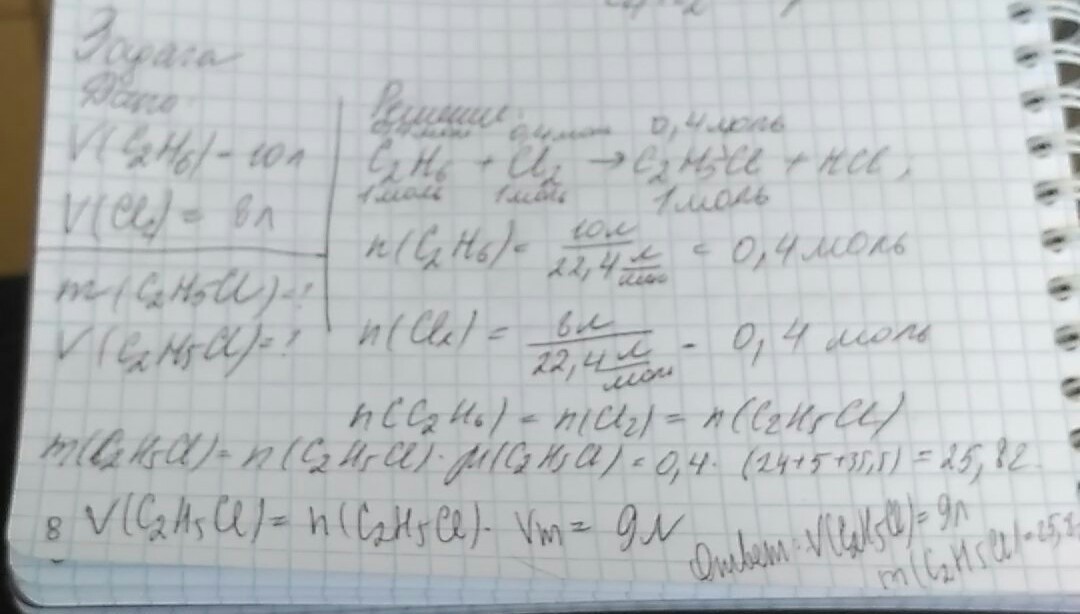 Задача
Дано:
V(C₂H₆) = 10л
V(Cl₂) = 8л
m(C₂H₅Cl) = ?
V(C₂H₅Cl) = ?
Решение:
0,4моль 0,4моль 0,4моль
C₂H₆ + Cl₂ → C₂H₅Cl + HCl;
1моль 1моль 1моль
n(C₂H₆) = 10л / 22,4 л/моль = 0,4 моль
n(Cl₂) = 8л / 22,4 л/моль = 0,4 моль
n(C₂H₆) = n(Cl₂) = n(C₂H₅Cl)
m(C₂H₅Cl) = n(C₂H₅Cl) · M(C₂H₅Cl) = 0,4 · (24+5+35,5) = 25,8г.
8 V(C₂H₅Cl) = n(C₂H₅Cl) · Vm = 9л
Ответ: V(C₂H₅Cl) = 9л
m(C₂H₅Cl) = 25,8